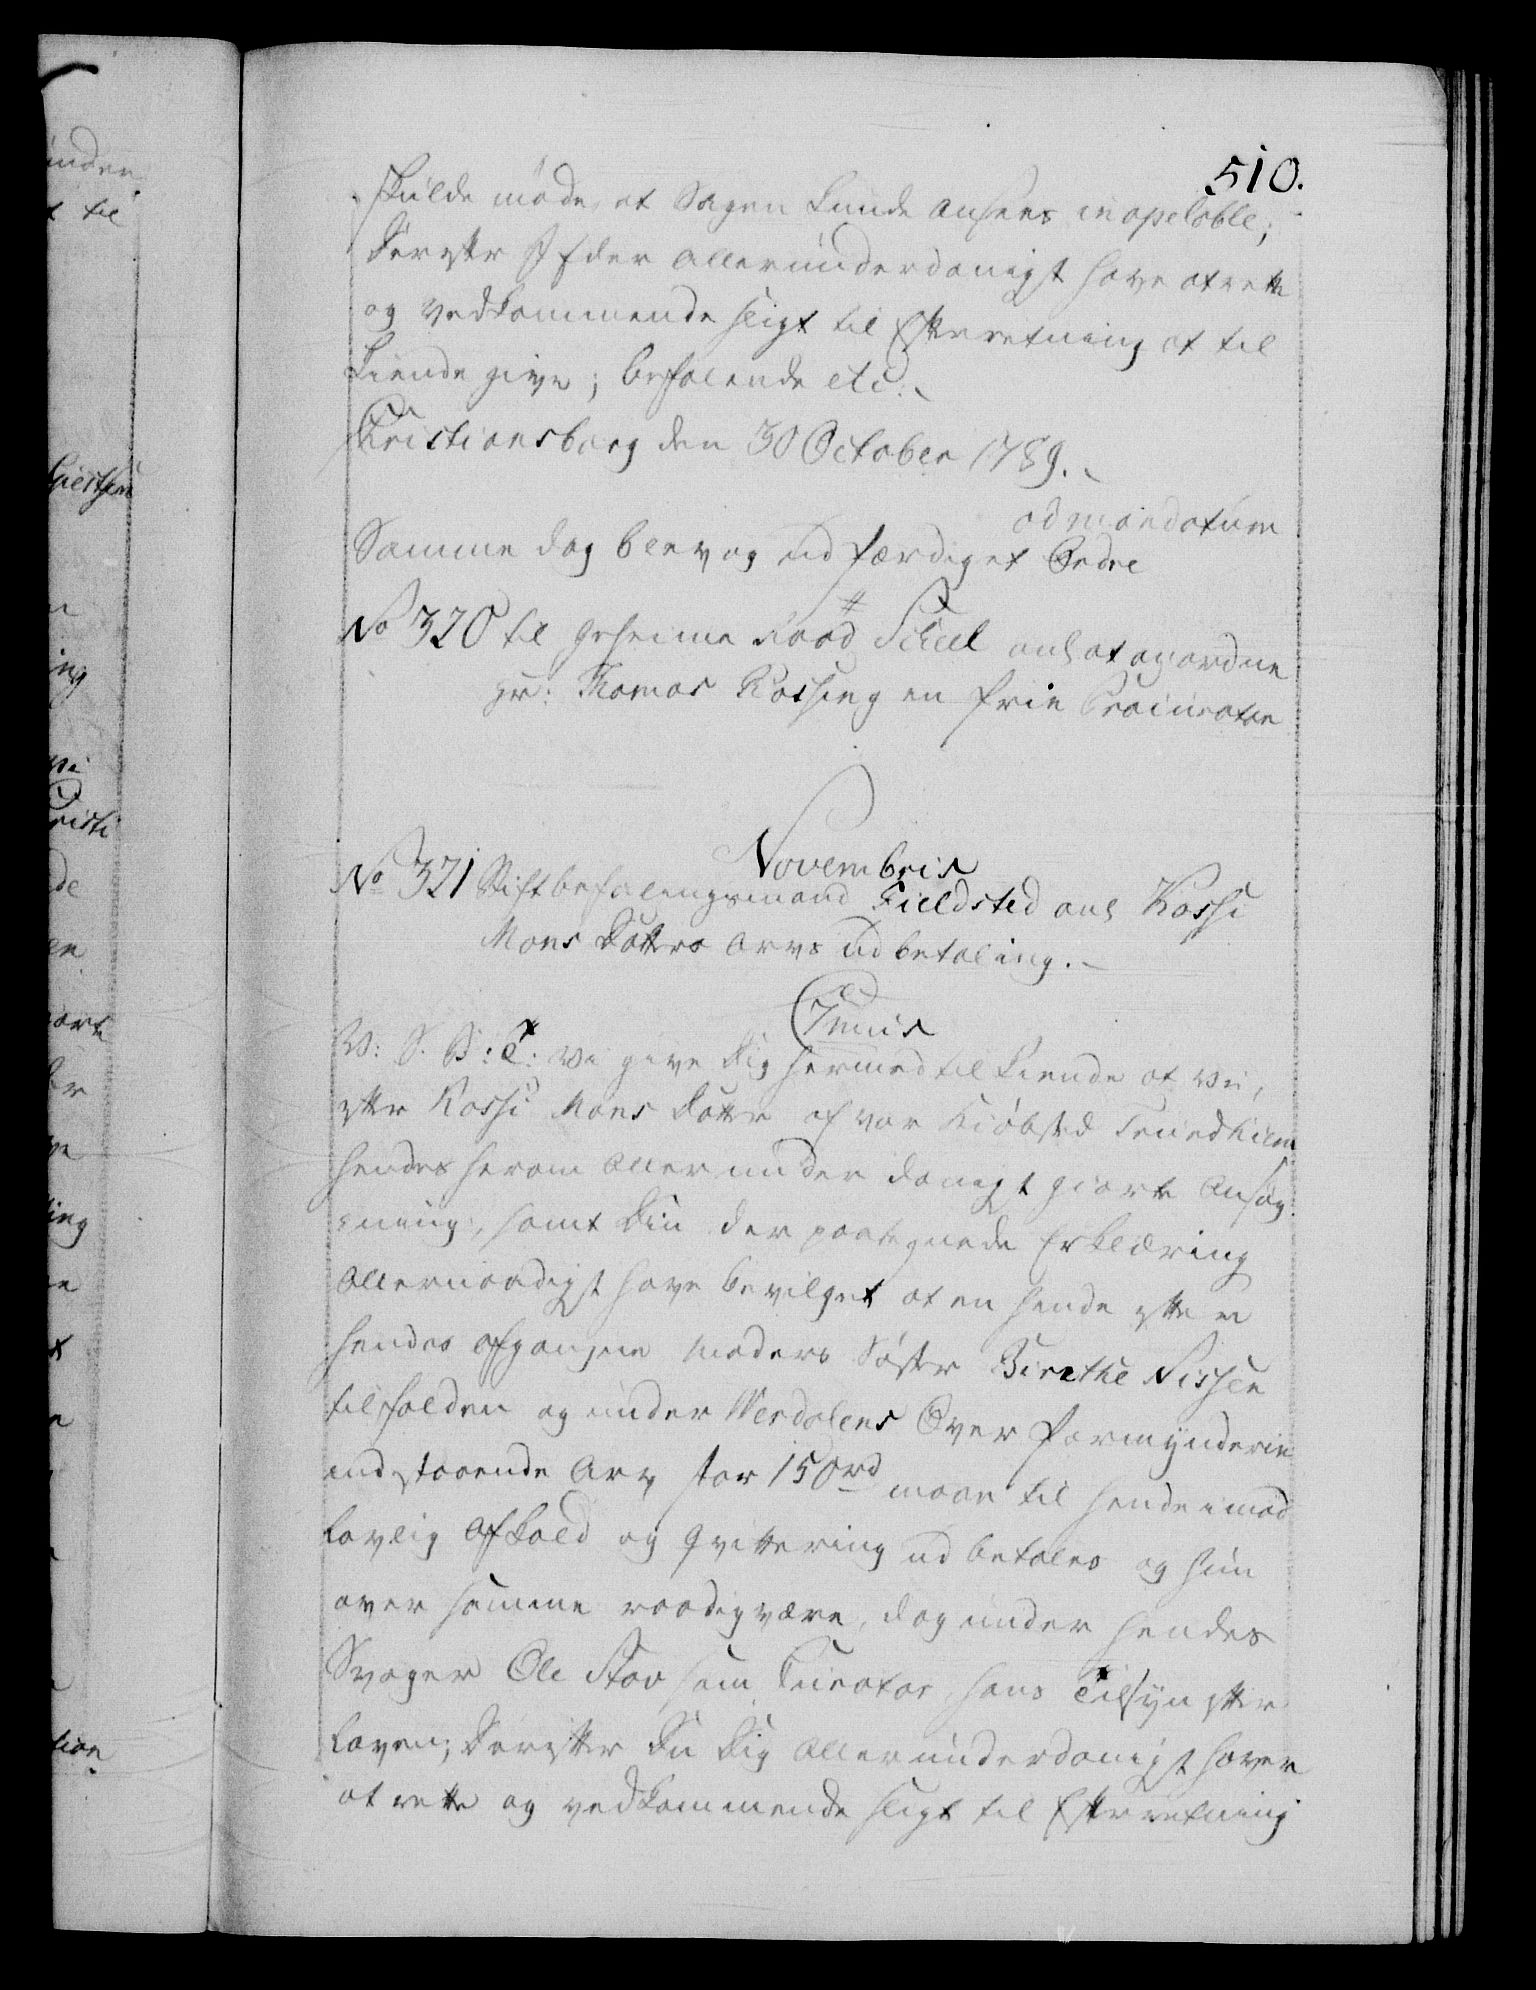 510.
skulde møde, at Sagen kunde ansees inapelable;
Derefter I Eder allerunderdanigst have at rette
og vedkommende sligt til Efterretning at til
kiende give; befalende etc:
Christiansborg den 30 October 1789.
ad mandatum
Samme dag blev og udfærdiget Ordre
No 320 til geheime Raad Scheel anl at anordne
Hr: Thomas Rossing en frie Procurator
Novembris
No 321 Stiftbefalingsmand Fieldsted anl Kossi
Mons Datters Arvs udbetaling.
7mis
V: S. B: T: Vi give Dig hermed tilkiende at Vi,
efter Kossi Mons Datter af vor Kiøbsted Trundhiem
hendes herom allerunderdanigst giorte Ansøg
ning, samt Din der paategnede Erklæring
allernaadigst have bevilget at en hende efter
hendes afgangne Moders Søster Birethe Nissen
tilfalden og under Werdalens Over formynderie
indstaaende Arv stor 150 rd maae til hende imod
lovlig Afkald og Qvittering udbetales og hun
over samme raadig være, dog under hendes
Svoger Ole Stav som Curator, hans Tilsyn efter
Loven; Derefter Du Dig allerunderdanigst haver
at rette og vedkommende sligt til Efterretning